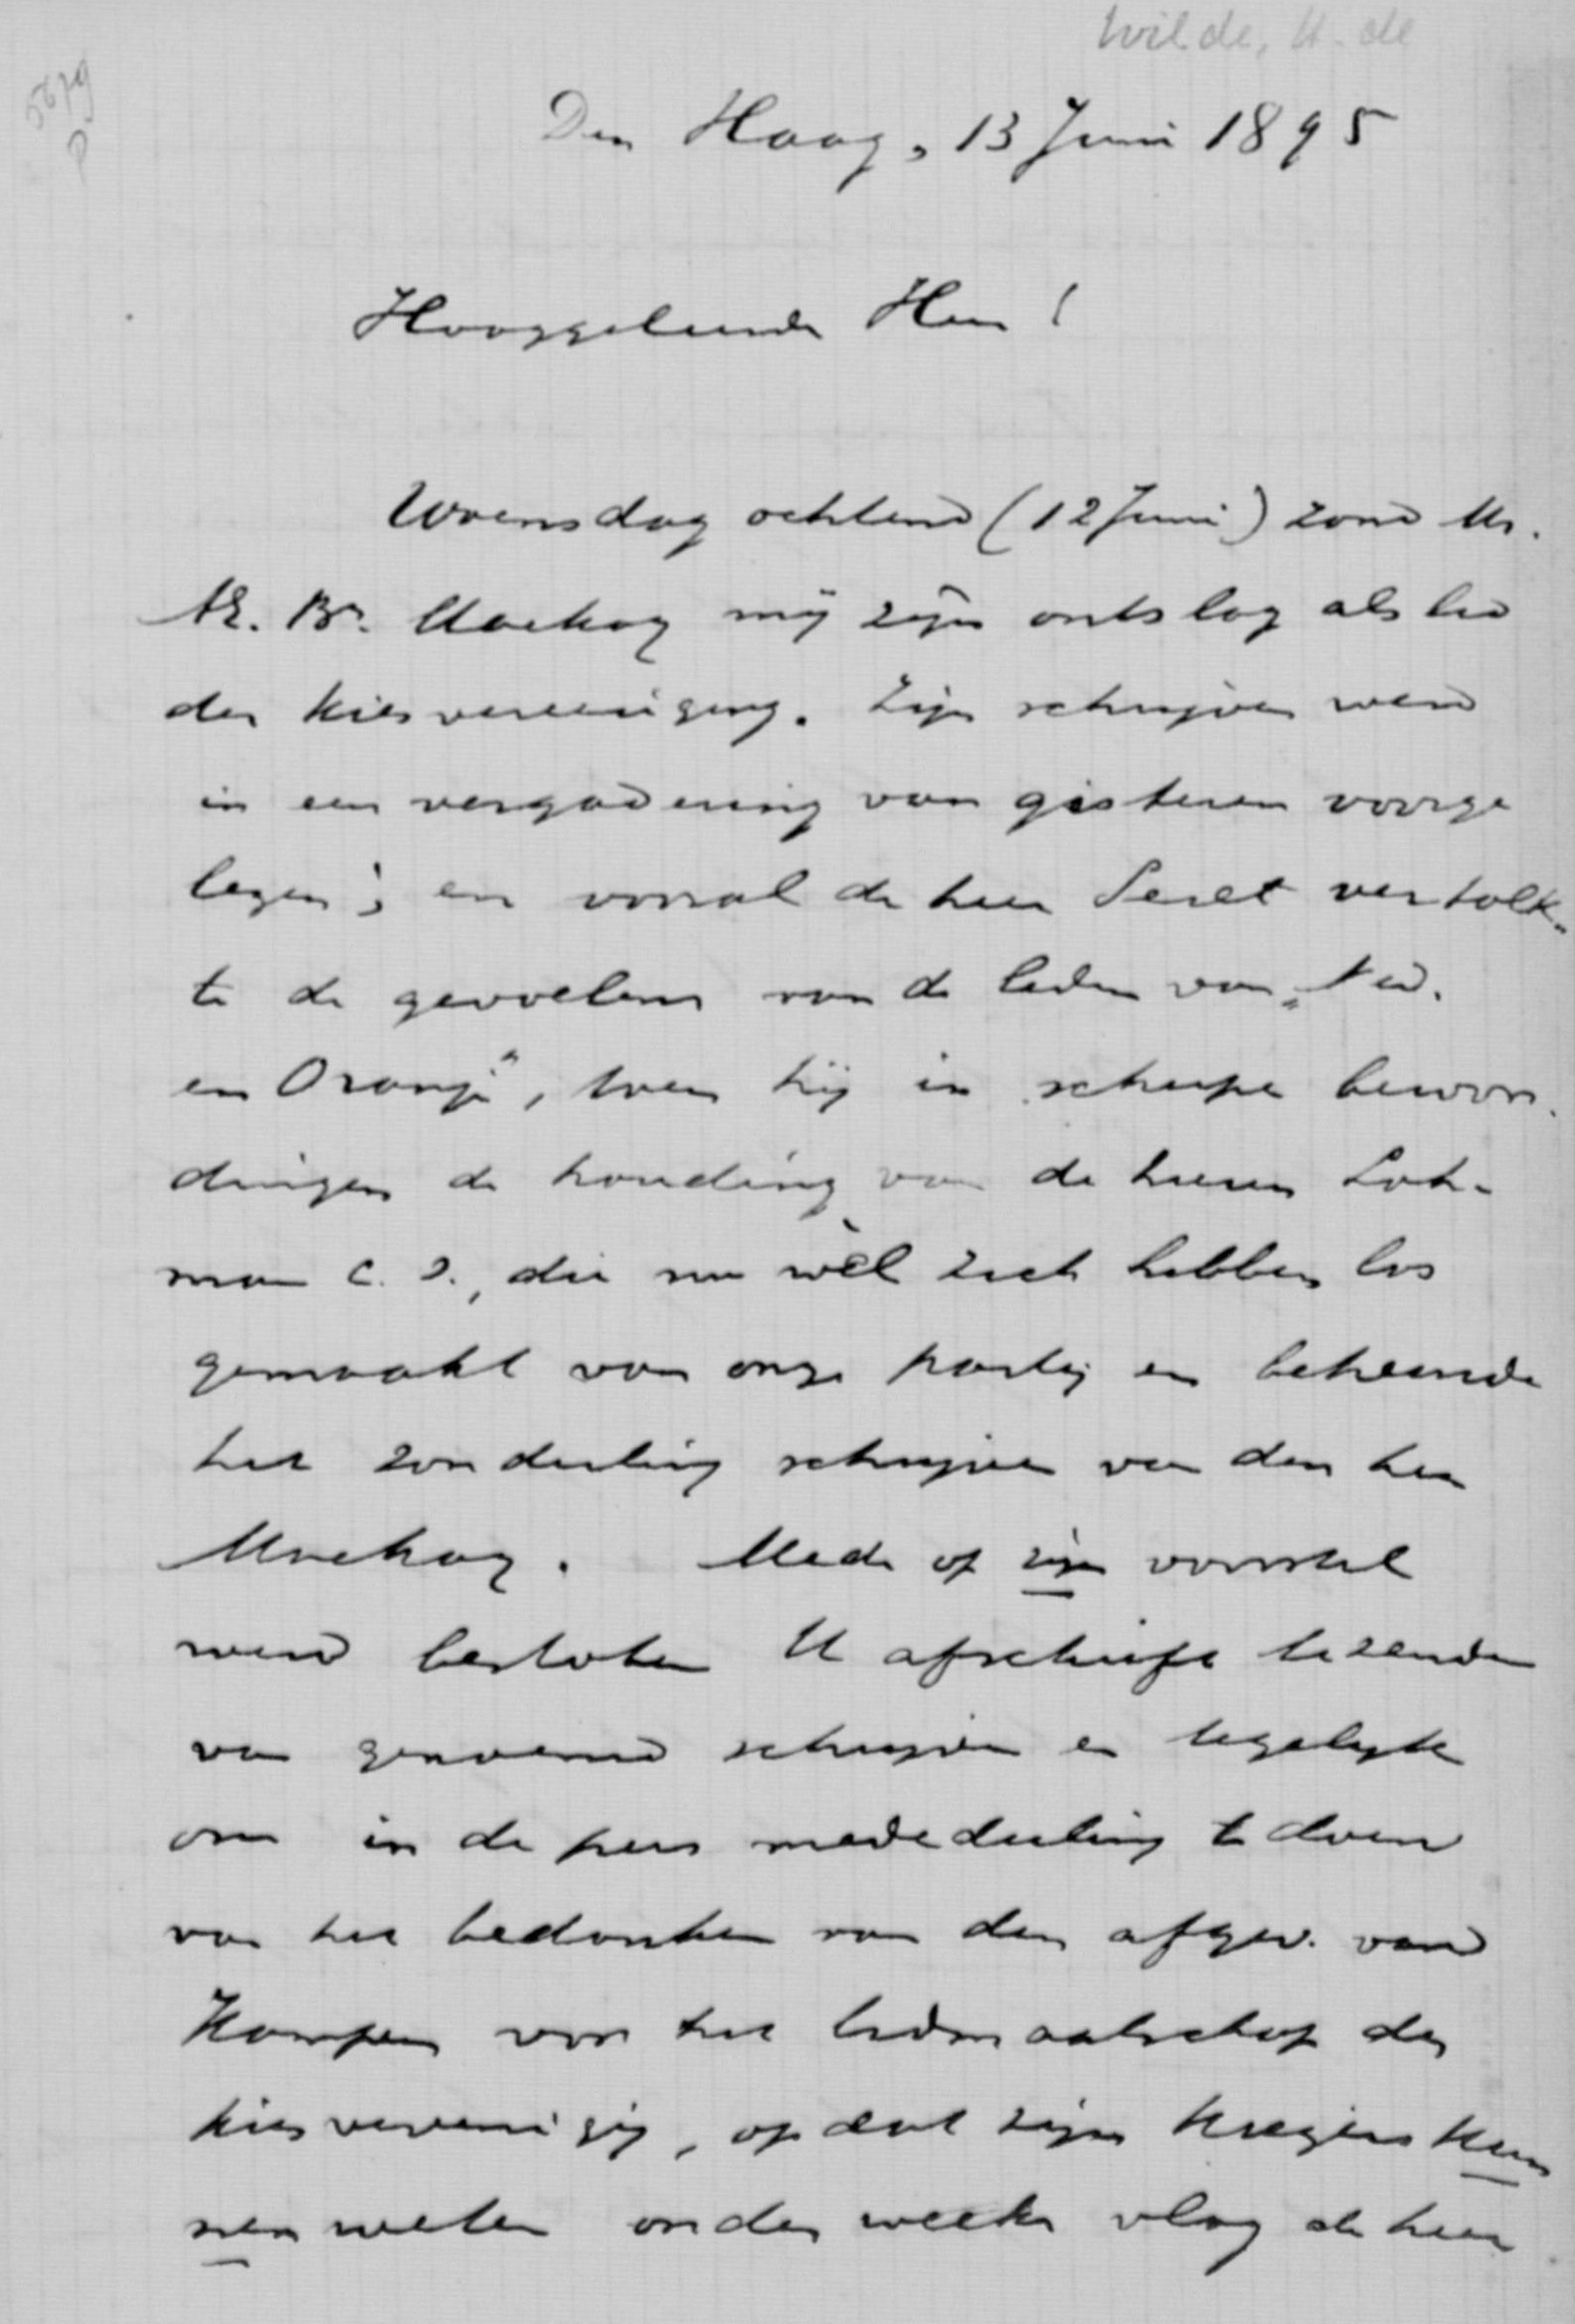 Wilde, H. de
5679
P
Den Haag, 13 Juni 1895
Hooggeleerde Heer!
Woensdag ochtend (12 Juni) zond Mr.
Æ. Bn. Mackay mij zijn ontslag als lid
der kiesvereeniging. Zijn schrijven werd
in een vergadering van gisteren voorge
lezen; en vooral de heer Seret vertolk-
te de gevoelens van de leden van „Ned.
en Oranje", toen hij in scherpe bewoor-
dingen de houding van de heeren Loh-
man c. s., die nu wèl zich hebben los
gemaakt van onze partij en betreurde
het zonderling schrijven van den heer
Mackay. Mede op zijn voorstel
werd besloten U afschrift te zenden
van genoemd schrijven en tegelijk
om in de pers mededeeling te doen
van het bedanken van den afgev. van
Kampen voor het lidmaatschap der
kiesvereenigig, opdat zijn kiezers kun
nen weten onder welke vlag de heer